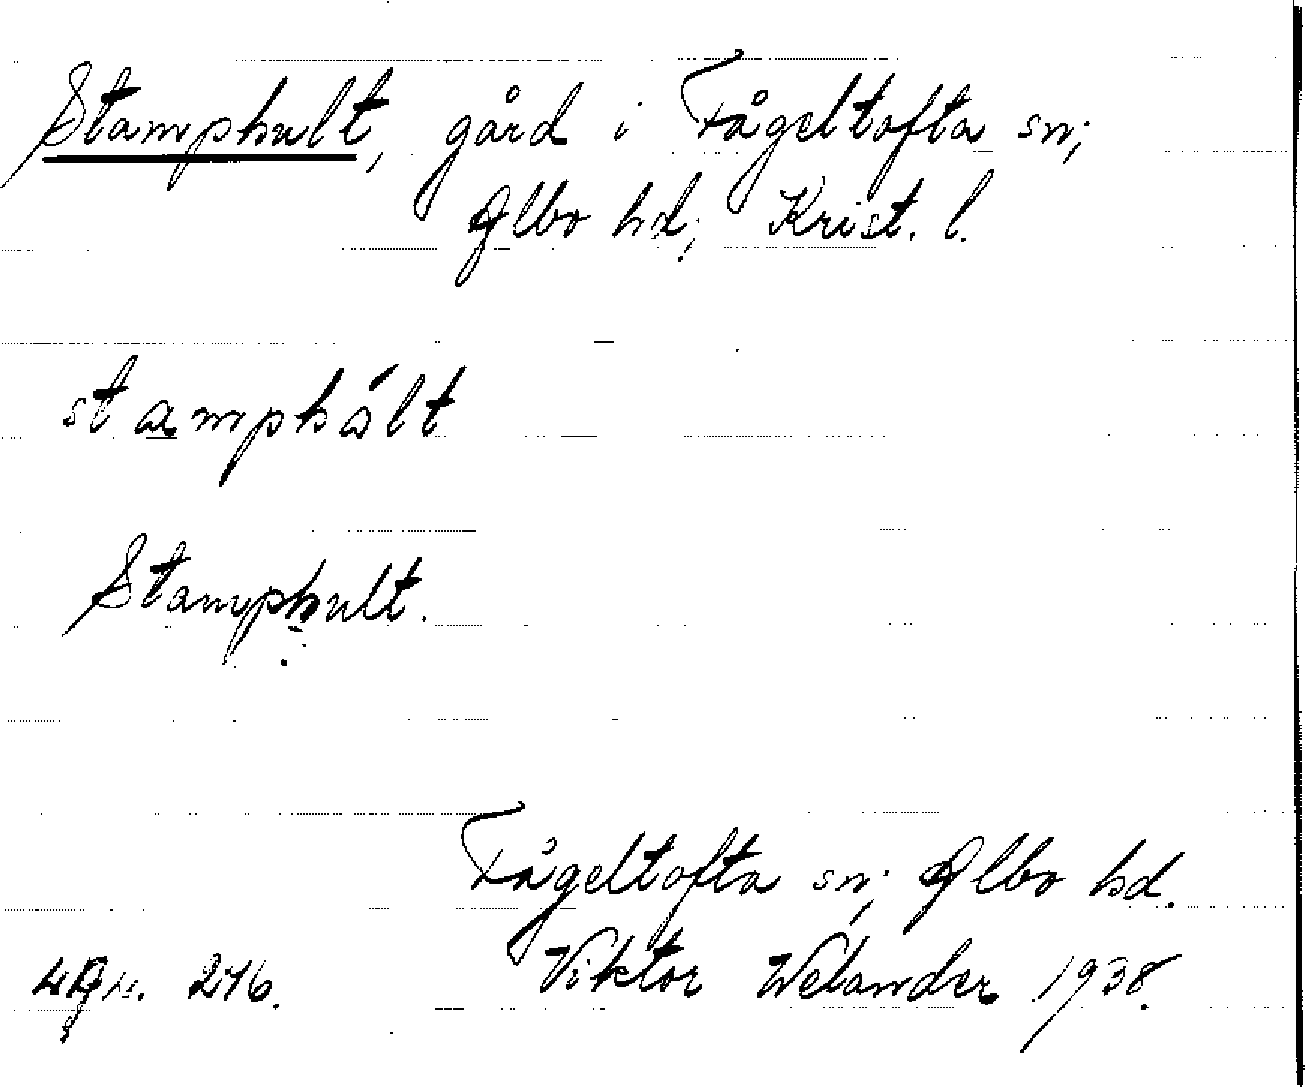 Stamphult, gård i Fågeltofta sn;
Albo hd; Krist. l.
Stamphult.
Fågeltofta sn; Albo hd.
Viktor Welander 1938.
246.